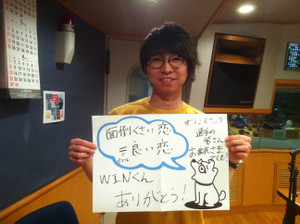 面倒くさい恋
=良い恋
WINくん
ありがとう!
オリンピック
選手の
皆さん
お疲れさま
でした